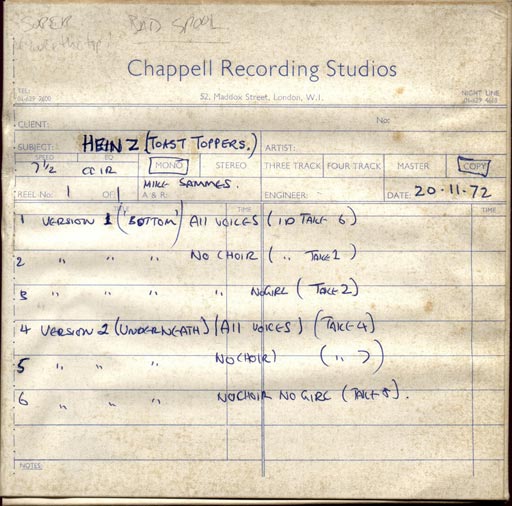 SUPER BAD SPOOL
Chappell Recording Studios
TEL: 01-629 2600
52, Maddox Street, London, W.1.
NIGHT LINE 01-629 4610
CLIENT: No:
SUBJECT: HEINZ (TOAST TOPPERS.) ARTIST:
SPEED EQ MONO STEREO THREE TRACK FOUR TRACK MASTER COPY
7½ CCIR
REEL No: 1 OF 1 A & R: MIKE SAMMES. ENGINEER: DATE: 20·11·72
TITLE TIME TIME
1 VERSION 1 (BOTTOM) All VOICES (ID TAKE 6)
2 " " " NO CHOIR ( " TAKE 1 )
3 " " " " NO GIRL ( TAKE 2 )
4 VERSION 2 (UNDERNEATH) (All VOICES) (TAKE 4)
5 " " " NO CHOIR) ( " )
6 " " " NO CHOIR NO GIRL (TAKE 8).
NOTES: